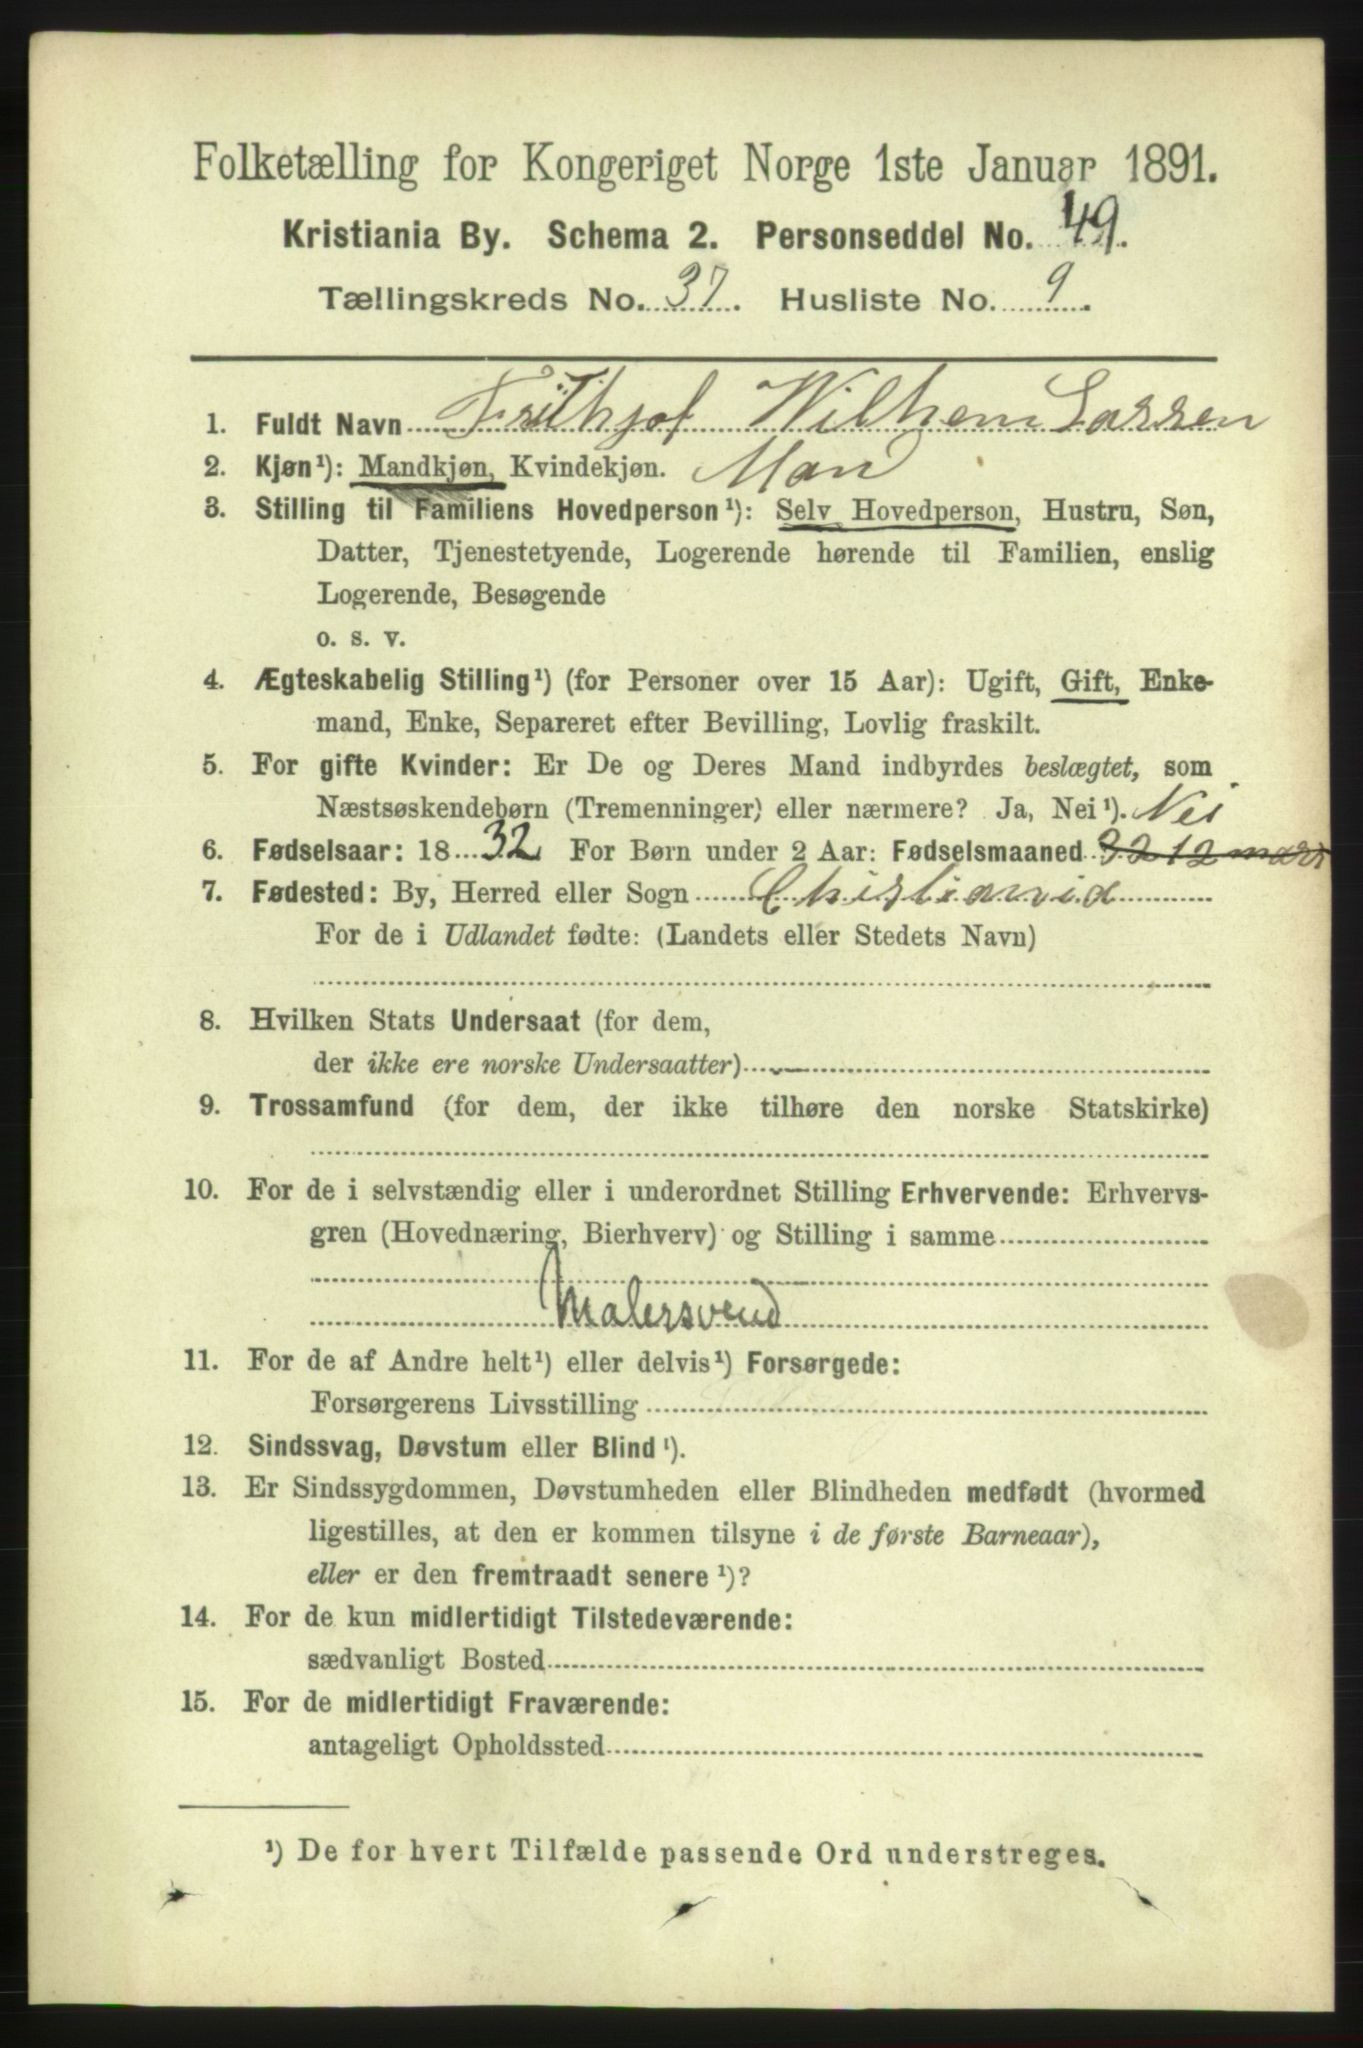 Folketælling for Kongeriget Norge 1ste Januar 1891.
Kristiania By. Schema 2. Personseddel No. 49.
Tællingskreds No. 37. Husliste No. 9.
1. Fuldt Navn Frithjof Wilhem Larsen
2. Kjøn¹): Mandkjøn, Kvindekjøn. Man
3. Stilling til Familiens Hovedperson¹): Selv Hovedperson, Hustru, Søn,
Datter, Tjenestetyende, Logerende hørende til Familien, enslig
Logerende, Besøgende
o. s. v.
4. Ægteskabelig Stilling¹) (for Personer over 15 Aar): Ugift, Gift, Enke-
mand, Enke, Separeret efter Bevilling, Lovlig fraskilt.
5. For gifte Kvinder: Er De og Deres Mand indbyrdes beslægtet, som
Næstsøskendebørn (Tremenninger) eller nærmere? Ja, Nei¹). Nei
6. Fødselsaar: 1832 For Børn under 2 Aar: Fødselsmaaned 32 12 mars
7. Fødested: By, Herred eller Sogn Christiania
For de i Udlandet fødte: (Landets eller Stedets Navn)
8. Hvilken Stats Undersaat (for dem,
der ikke ere norske Undersaatter)
9. Trossamfund (for dem, der ikke tilhøre den norske Statskirke)
10. For de i selvstændig eller i underordnet Stilling Erhvervende: Erhvervs-
gren (Hovednæring, Bierhverv) og Stilling i samme
Malersvend
11. For de af Andre helt¹) eller delvis¹) Forsørgede:
Forsørgerens Livsstilling
12. Sindssvag, Døvstum eller Blind¹).
13. Er Sindssygdommen, Døvstumheden eller Blindheden medfødt (hvormed
ligestilles, at den er kommen tilsyne i de første Barneaar),
eller er den fremtraadt senere¹)?
14. For de kun midlertidigt Tilstedeværende:
sædvanligt Bosted
15. For de midlertidigt Fraværende:
antageligt Opholdssted
¹) De for hvert Tilfælde passende Ord understreges.